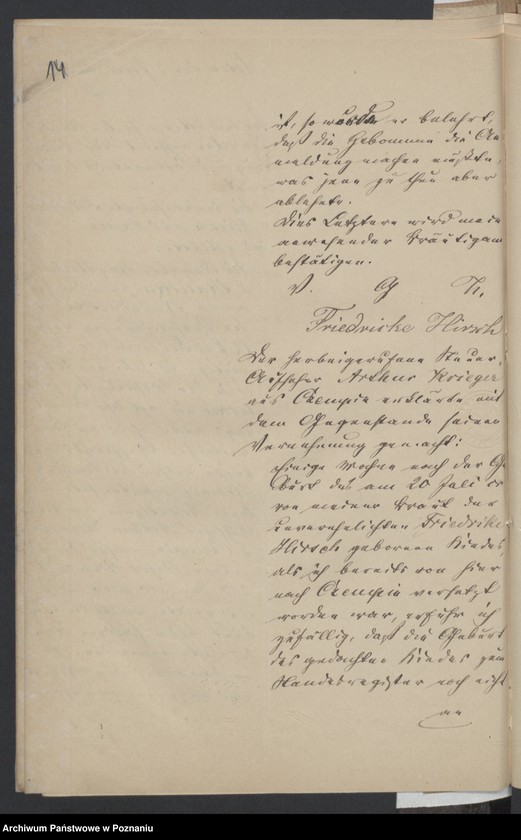 14
ist, so wurde er belehrt,
daß die Hebamme die An
meldung machen müßte,
was jene zu thun aber
ablehnte.
Dies Letztere wird mein
anwesender Bräutigam
bestätigen.
V. G. U.
Friedricke Hirsch
Der herbeigerufene Steuer-
Aufseher Arthur Krieger
aus Czempin erklärte mit
dem Gegenstande seiner
Vernehmung gemacht:
Einige Wochen nach der Ge
burt des am 20 Juli cr
von meiner Braut der
unverehelichten Friedrike
Hirsch geborenen Kindes,
als ich bereits von hier
nach Czempin versetzt
worden war, erfuhr ich
zufällig, daß die Geburt
des gedachten Kindes zum
Standesregister noch nicht
an
Archiwum Państwowe w Poznaniu